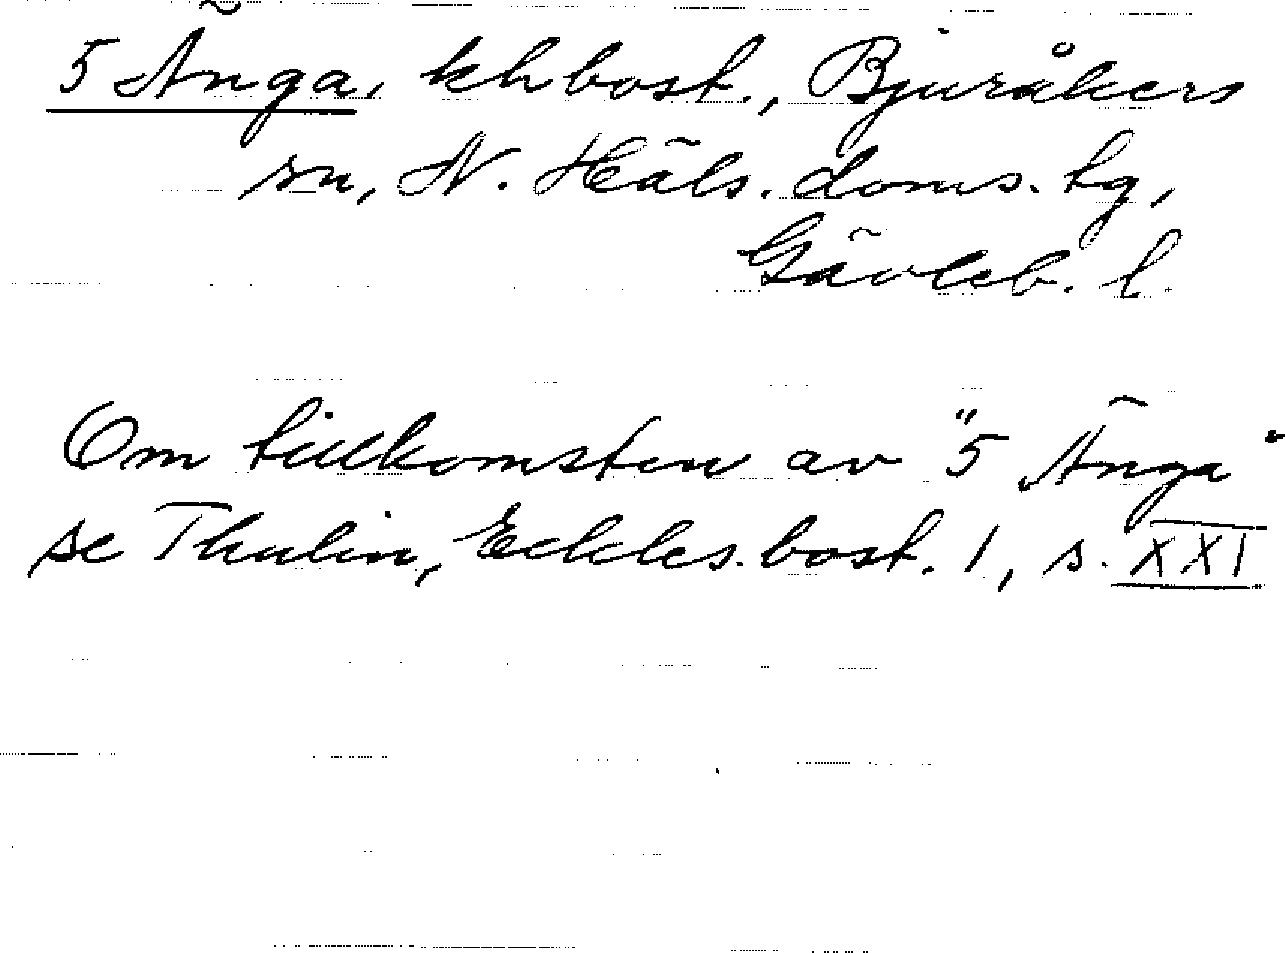 5 Änga, khbost., Bjuråkers
sn, N. Häls. doms. tg,
Gävleb. l.
Om tillkomsten av "5 Änga"
se Thulin, Eckles. bost. 1, s. XXI